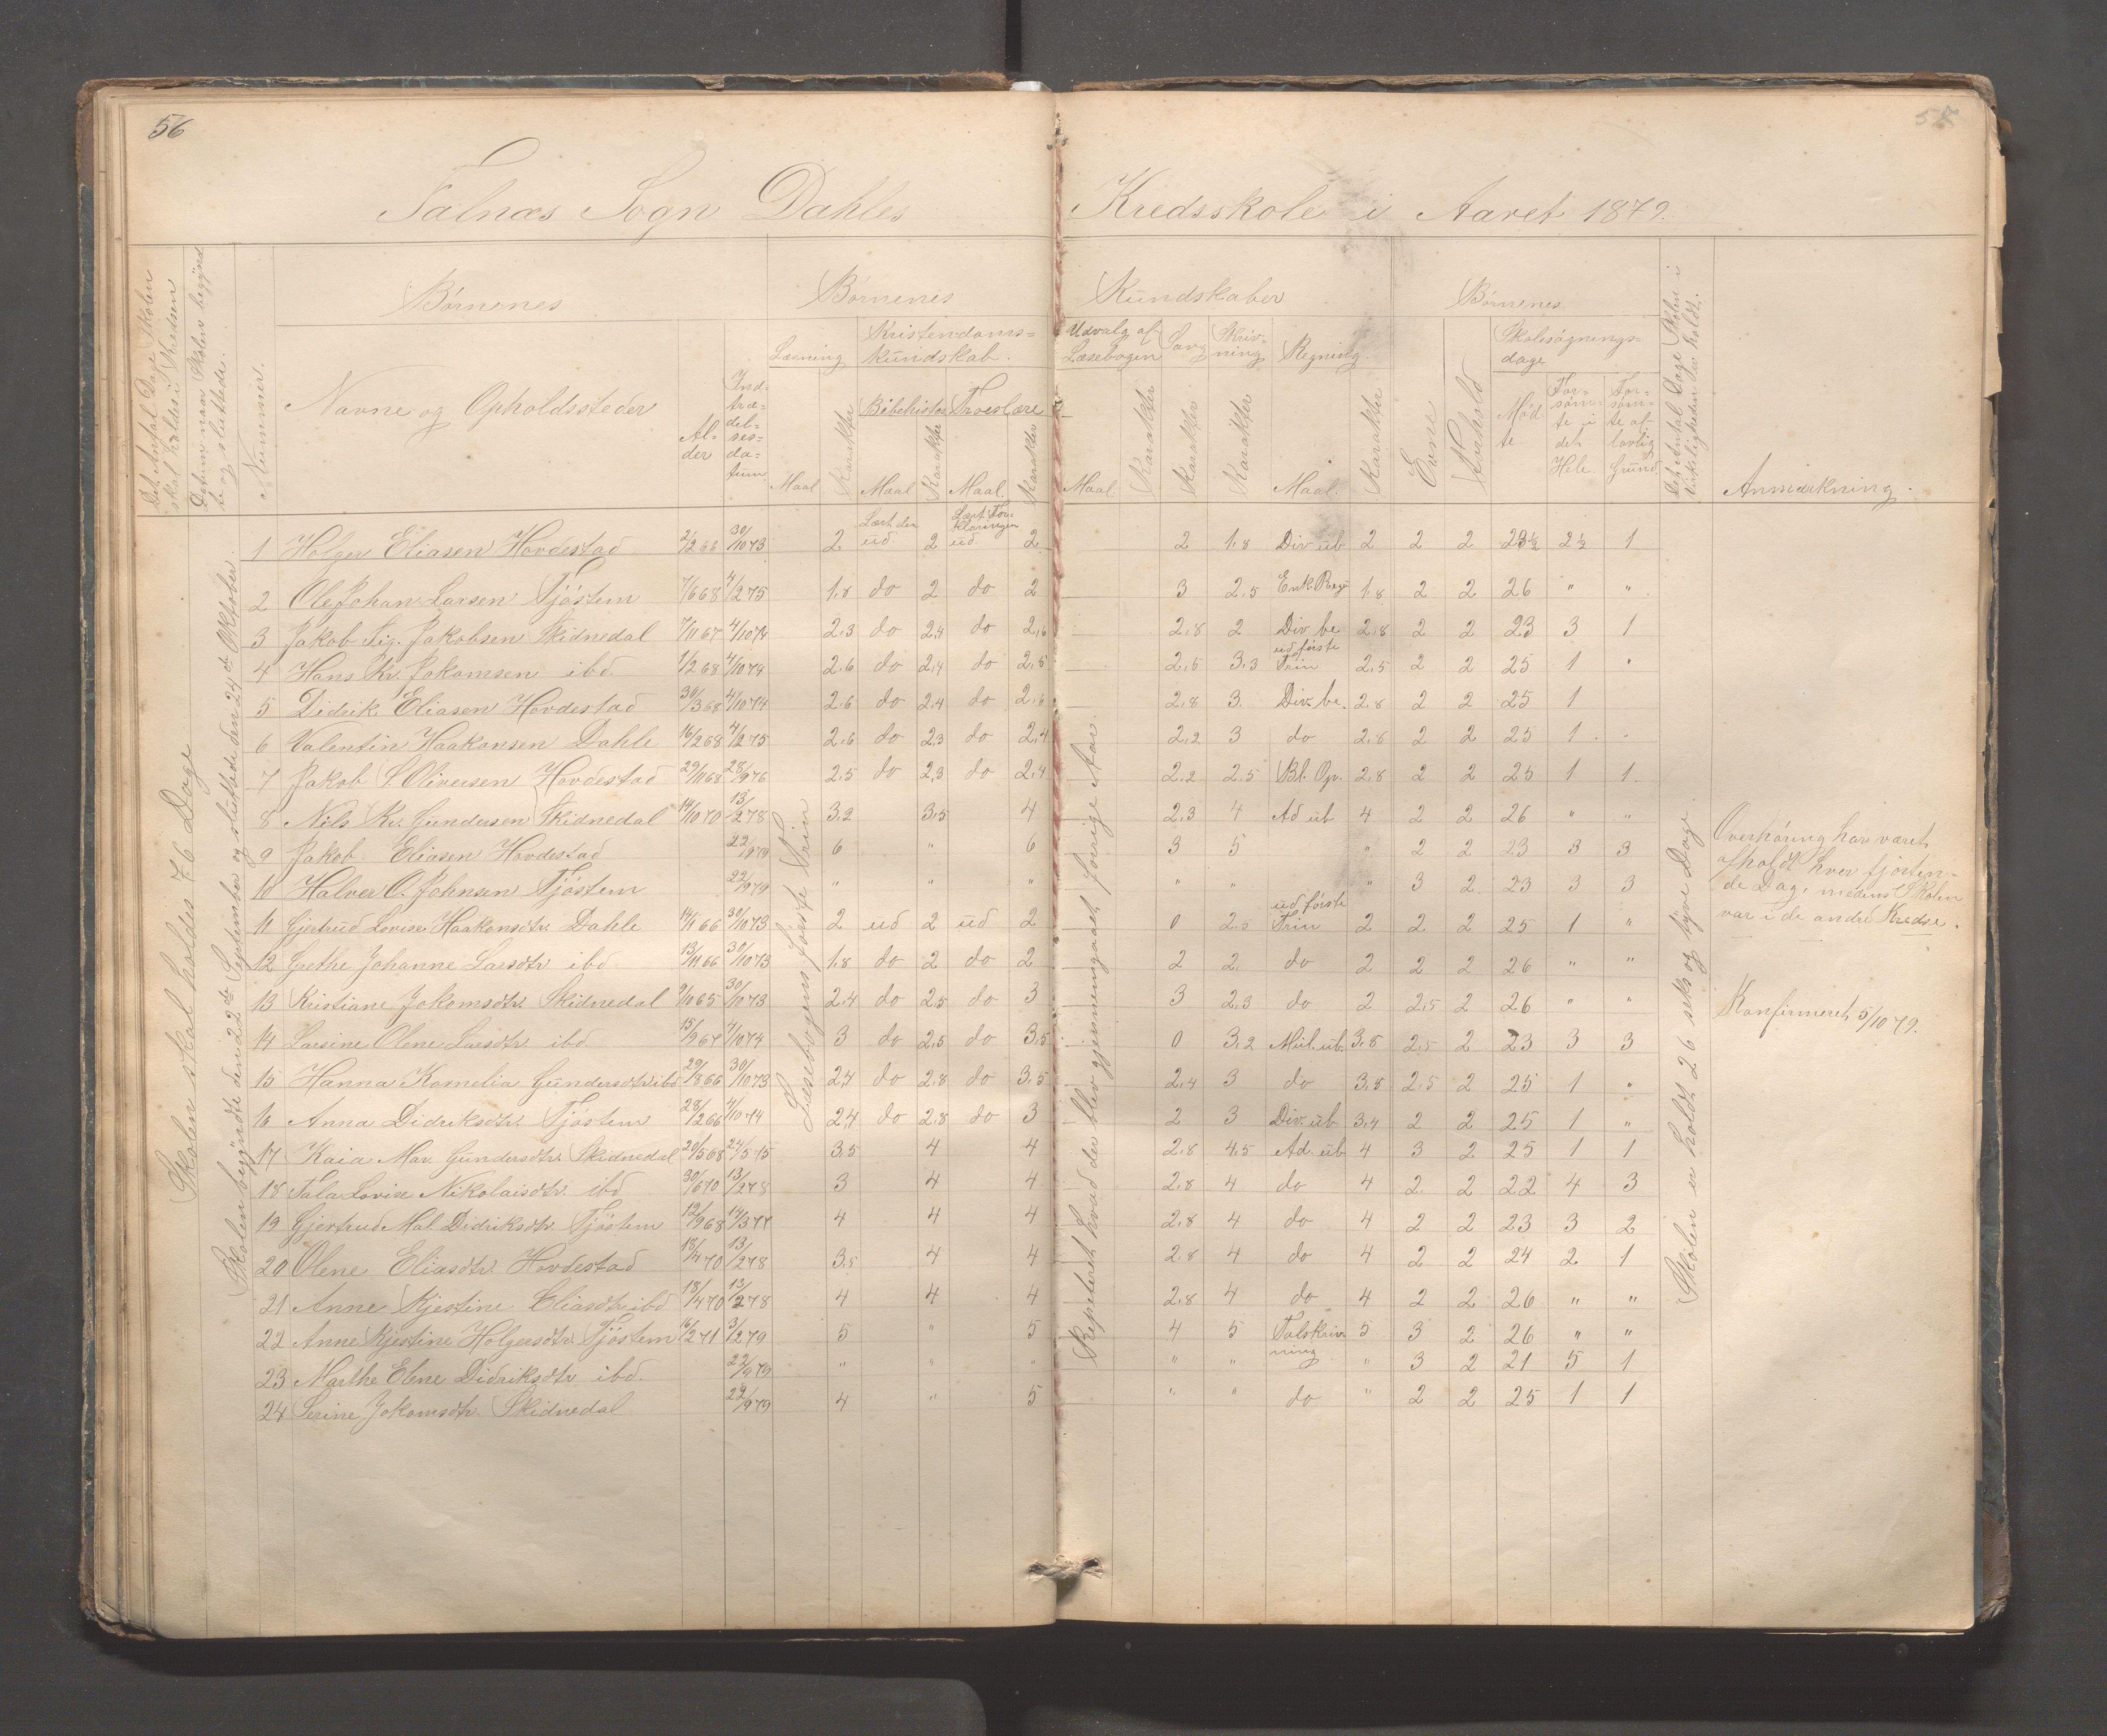 56
57
Falnæs Sogn Dahles Kredsskole i Aaret 1879.
Det Antal Dage Skolen skal holdes i Kredsen
Datum naar Skolen begyndte og sluttede.
Nummer.
Børnenes
Navne og Opholdssteder
Alder
Indtrædelsesdatum
Børnenes Kundskaber
Læsning
Maal
Karakter
Kristendomskundskab.
Bibelhistor
Maal
Karakter
Troeslære
Maal.
Karakter
Udvalg af Læsebogen
Maal.
Karakter
Sang
Karakter
Skrivning
Karakter
Regning.
Maal.
Karakter
Børnenes
Evne
Forhold
Skolesøgningsdage
Mødte
Forsømte i det Hele.
Forsømte af lovlig Grund
Det Antal Dage Skolen i Virkeligheden har holdt.
Anmærkning.
Skolen skal holdes 76 Dage
Skolen begyndte den 22de September og sluttede den 24de Oktober.
Læsebogens første Trin
Repeteret hvad der blev gjennemgaaet forrige Aar.
Skolen er holdt 26 seks og tyve Dage.
1 Holger Eliasen Hovdestad 2/2 66 30/10 73 2 Læst den ud. 2 Læst Forklaringen ud. 2 2 1,8 Div. ub 2 2 2 23½ 2½ 1
2 Ole Johan Larsen Tjøstem 7/6 68 4/2 75 1,8 do 2 do 2 3 2,5 Enk. Reg 1,8 2 2 26 " "
3 Jakob Sig. Jakobsen Skidnedal 7/11 67 4/10 74 2,3 do 2,4 do 2,6 2,8 2 Div. be 2,8 2 2 23 3 1
4 Hans Kr. Jokomsen ibd. 1/2 68 4/10 74 2,6 do 2,4 do 2,5 2,5 3,3 ud første Trin 2,5 2 2 25 1 "
5 Didrik Eliasen Hovdestad 30/3 68 4/10 74 2,6 do 2,4 do 2,6 2,8 3 Div. be. 2,8 2 2 25 1
6 Valentin Haakonsen Dahle 16/2 68 4/2 75 2,6 do 2,3 do 2,4 2,2 3 do 2,8 2 2 25 1 "
7 Jakob S. Oliversen Hovdestad 29/11 68 28/9 76 2,5 do 2,3 do 2,4 2,2 2,5 Bl. Op. 2,8 2 2 25 1 1
8 Nils Kr. Gundersen Skidnedal 14/10 70 13/2 78 3,2 3,5 4 2,3 4 Ad ub 4 2 2 26 " "
9 Jakob Eliasen Hovdestad 22/9 79 6 " 6 3 5 " 2 2 23 3 3
10 Halver O. Johnsen Tjøstem 22/9 79 " " " " " " 3 2 23 3 3
11 Gjertrud Lovise Haakonsdtr. Dahle 14/1 66 30/10 73 2 ud 2 ud 2 0 2,5 ud første Trin 2 2 2 25 1 "
12 Grethe Johanne Larsdtr ibd 13/11 66 30/10 73 1,8 do 2 do 2 2 2 do 2 2 2 26 " "
13 Kristiane Jokomsdtr. Skidnedal 9/10 65 30/10 73 2,4 do 2,5 do 3 3 2,3 do 2 2,5 2 26 " "
14 Larsine Olene Larsdtr ibd 15/9 67 4/10 74 3 do 2,5 do 3,5 0 3,2 Mul. ub. 3,8 2,5 2 23 3 3
15 Hanna Kornelia Gundersdtr ibd 29/8 66 30/10 73 2,4 do 2,8 do 3,5 2,4 3 do 3,8 2,5 2 25 1 "
16 Anna Didriksdtr. Tjøstem 28/2 66 4/10 74 2,4 do 2,8 do 3 2 3 Div. ub 3,4 2 2 25 1 "
17 Kaia Mar. Gundersdtr. Skidnedal 20/5 68 24/5 75 3,5 4 4 2,8 4,5 Ad. ub 4 3 2 25 1 1
18 Tala Lovise Nikolaisdtr. ibd 30/6 70 13/2 78 3 4 4 2,8 4 do 4 2 2 22 4 3
19 Gjertrud Mal. Didriksdtr. Tjøstem 12/9 68 14/3 77 4 4 4 2,8 4 do 4 2 2 23 3 2
20 Olene Eliasdtr. Hovdestad 18/4 70 13/2 78 3,5 4 4 2,8 4 do 4 2 2 24 2 1
21 Anne Kjestine Eliasdtr ibd 18/4 70 13/2 78 4 4 4 2,8 4 do 4 2 2 26 " "
22 Anne Kjestine Holgersdtr. Tjøstem 16/2 71 3/2 79 5 " 5 4 5 Talskrivning 5 3 2 26 " "
23 Marthe Elene Didriksdtr ibd. 22/9 79 " " " " " " 3 2 21 5 1
24 Serine Jokomsdtr. Skidnedal 22/9 79 4 " 5 " " do " 2 2 25 1 1
Overhøring har været
afholdt hver fjorten-
de Dag, medens Skolen
var i de andre Kredse.
Konfirmeret 5/10 79.